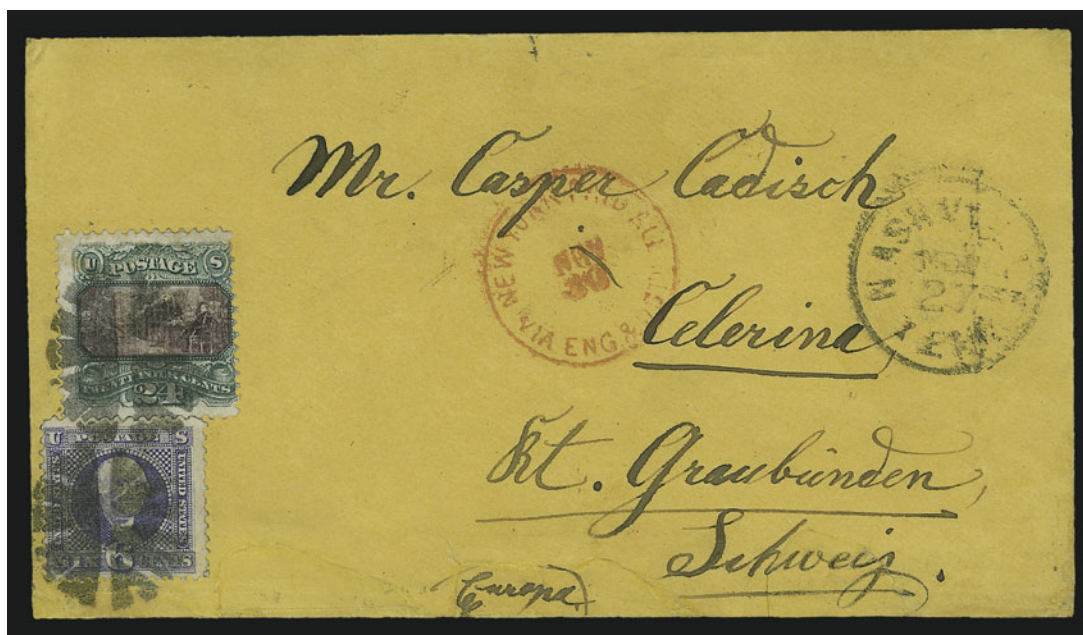 Mr. Casper Cadisch
Celerina
Kt. Graubünden,
Schweiz.
(Europa)
NEW YORK PAID ALL
NOV
30
VIA ENG. &
NASHVILLE
27
TENN
U POSTAGE S
TWENTY FOUR CENTS
24
U POSTAGE S
UNITED STATES
6 CENTS